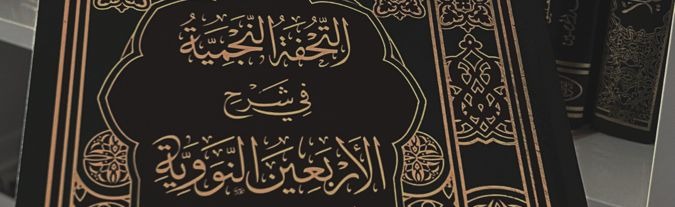 التُّحْفَةُ النَّجْمِيَّةُ
فِي شَرْحِ
الأَرْبَعِينَ النَّوَوِيَّةِ